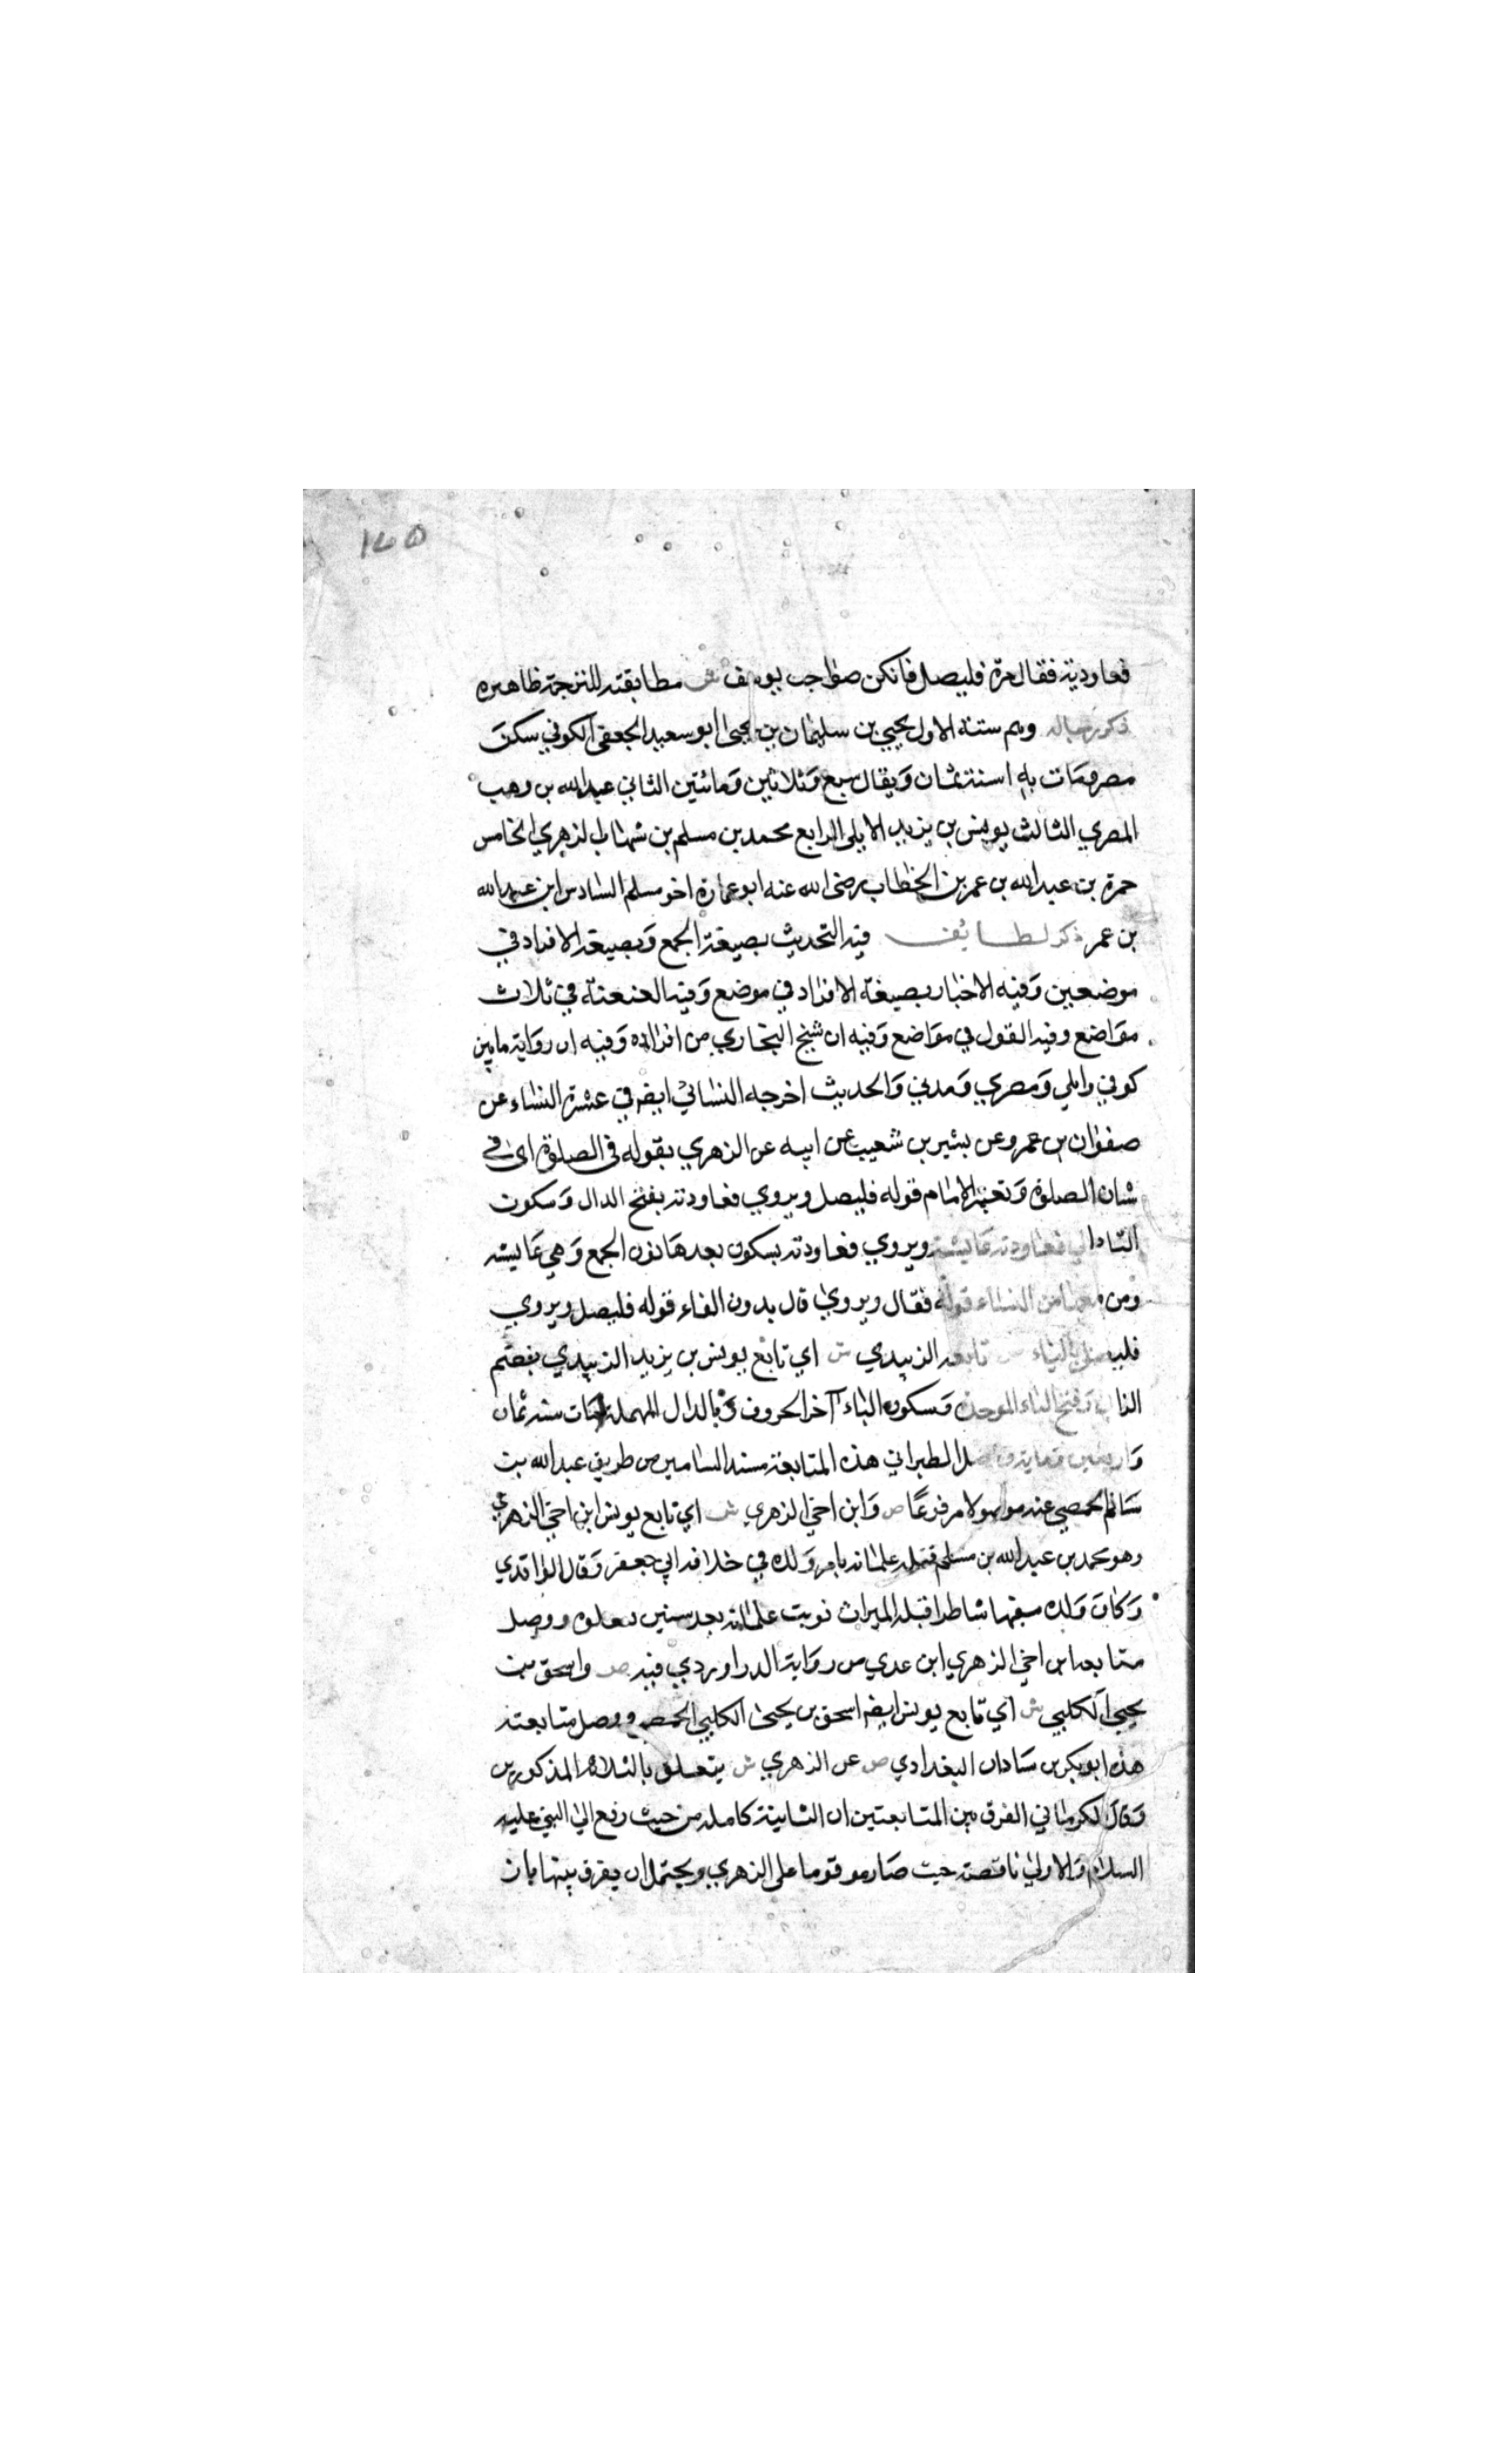 ١٤٥
فعاودته فقال مرة فليصل فانكن صواحب يوسف ش مطابقته للترجمة ظاهره
ذكر رجاله وهم ستة الاول يحيى بن سليمان بن يحيى ابو سعيد الجعفي الكوفي سكن
مصر ومات بها سنة ثمان ويقال سبع وثلاثين ومائتين الثاني عبد الله بن وهب
المصري الثالث يونس بن يزيد الايلي الرابع محمد بن مسلم بن شهاب الزهري الخامس
حمزة بن عبد الله بن عمر بن الخطاب رضى الله عنه ابو عمارة اخو مسلم السادس ابن عبد الله
بن عمر ذكر لطائف فيه التحديث بصيغة الجمع وبصيغة الافراد في
موضعين وفيه الاخبار بصيغة الافراد في موضع وفيه العنعنة في ثلاث
مواضع وفيه القول في مواضع وفيه ان شيخ البخاري من افراده وفيه ان رواية مابين
كوفي وايلي ومصري ومدني والحديث اخرجه النسائي ايضا في عشرة النساء عن
صفوان بن عمرو عن بشير بن شعيب عن ابيه عن الزهري بقوله في الصلوة اى في
شان الصلوة وتعين الامام قوله فليصل ويروي فعاودته بفتح الدال وسكون
التا اي فعاودته عايشة ويروي فعاودنه بسكون بعدها نون الجمع وهي عايشه
ومن معها من النساء قوله فقال ويروى قال بدون الفاء قوله فليصل ويروي
فليصلي بالياء ص تابعه الزبيدي ش اي تابع يونس بن يزيد الزبيدي بضم
الزاي وفتح الباء الموحدة وسكون الياء آخر الحروف وبالدال المهملة مات سنة ثمان
واربعين ومايه ووصل الطبراني هذه المتابعة مسند الشاميين من طريق عبد الله بن
سالم الحمصي عنه موصولا مرفوعا ص وابن اخي الزهري ش اي تابع يونس ابن اخي الزهري
وهو محمد بن عبد الله بن مسلم قتله غلمانه بامر ولده في خلافة ابي جعفر وقال الواقدي
وكان ولده سفيها شاطرا قتله للميراث فوثبت غلمانه بعد سنين فقتلوه ووصل
متابعة ابن اخي الزهري ابن عدي من رواية الدراوردي فيه ص واسحق بن
يحيى الكلبي ش اي تابع يونس ايضا اسحق بن يحيى الكلبي الحمصي ووصل متابعته
هذه ابو بكر بن شادان البغدادي ص عن الزهري ش يتعلق بالثلاثة المذكورين
وقال الكرماني الفرق بين المتابعتين ان الثانية كاملة من حيث رفع الى النبي عليه
السلام والاولى ناقصة حيث صار موقوفا على الزهري ويحتمل ان يفرق بينها بان